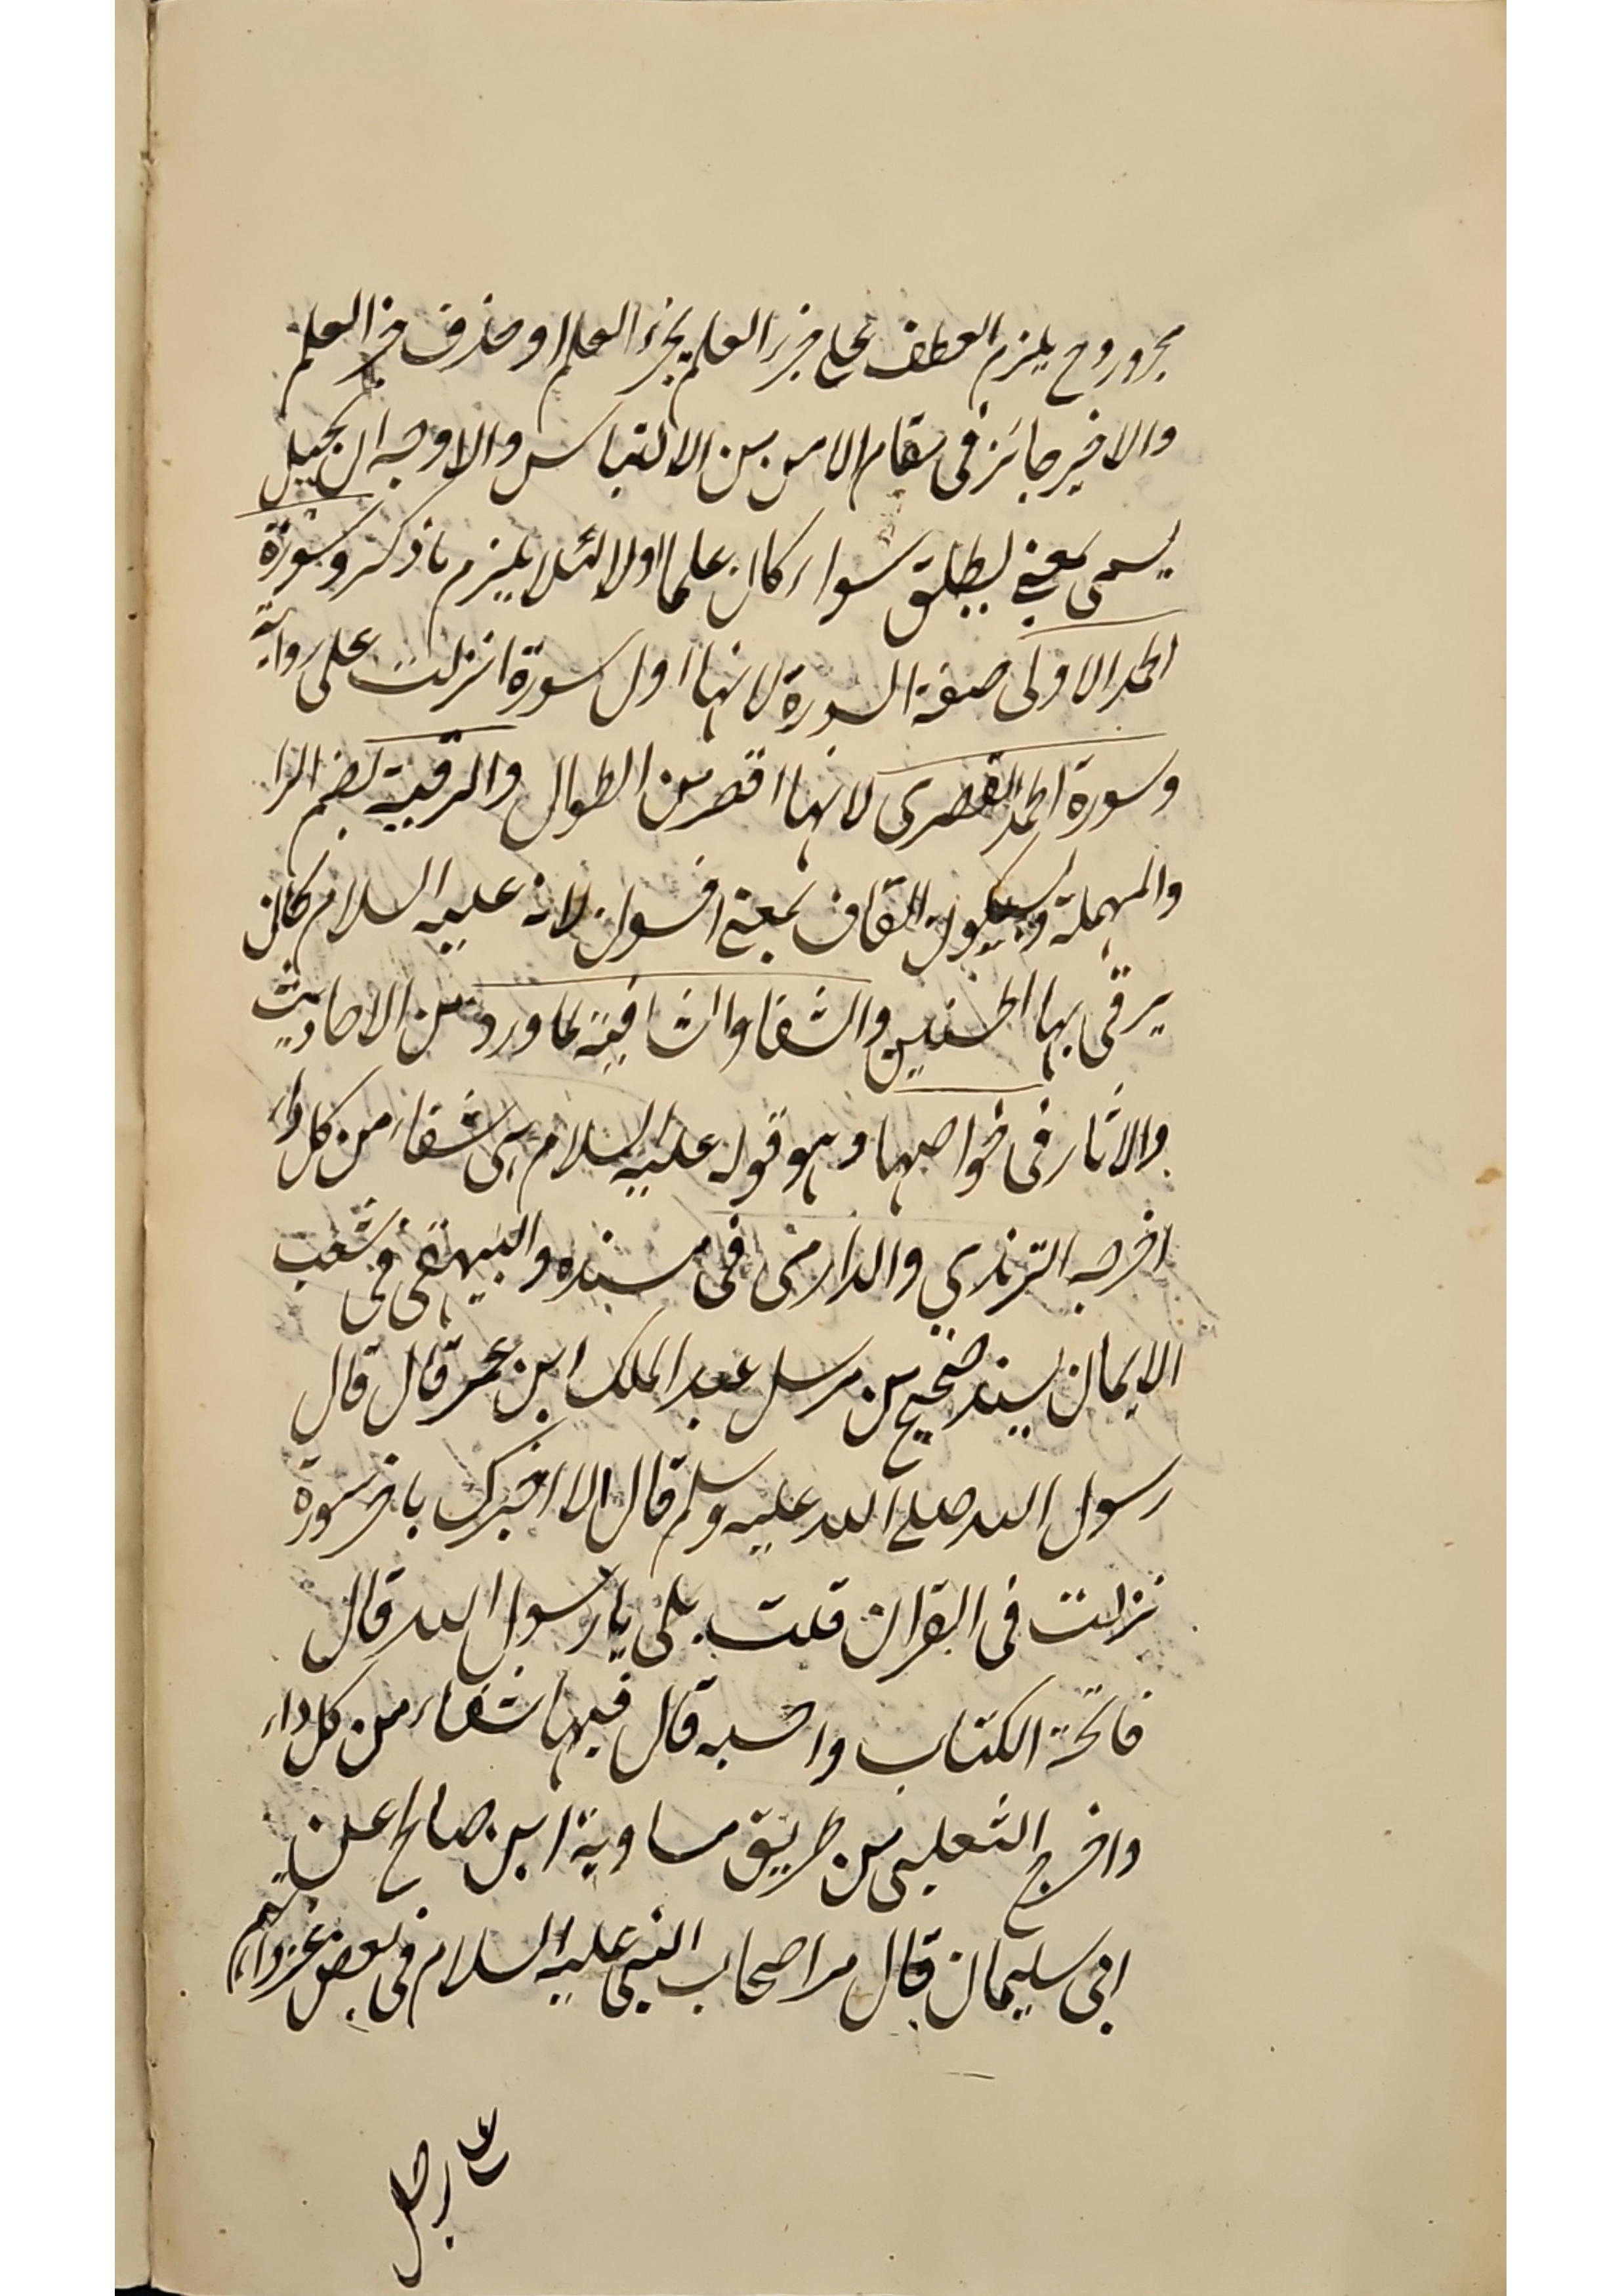 مجرور وح يلزم العطف على جزء العلم بجزء العلم او حذف جزء العلم
والاخير جائز فى مقام الامن من الالتباس والاوجه ان يجعل
يسمى بمعنى يطلق سواء كان علما اولا لئلا يلزم ما ذكر وسورة
الحمد الاولى صفة السورة لانها اول سورة انزلت على رواية
وسورة الحمد القصرى لانها اقصر من الطوال والرقية بضم الرا
والمهملة وبسكون القاف بمعنى افسون لانه عليه السلام كان
يرقى بها الحسنين والشفا والشافية لما ورد من الاحاديث
والاثار فى خواصها وهو قوله عليه السلام هى شفاء من كل داء
اخرجه الترمذي والدارمى فى مسنده والبيهقى فى شعب
الايمان بسند صحيح من مرسل عبد الملك ابن عمر قال قال
رسول الله صلى الله عليه وسلم قال الا اخبرك باخر سورة
نزلت فى القران قلت بلى يا رسول الله قال
فاتحة الكتاب واحسبه قال فيها شفاء من كل داء
واخرج الثعلبى من طريق معاوية ابن صالح عن
ابى سليمان قال مر اصحاب النبى عليه السلام فى بعض غزواتهم
على رجل